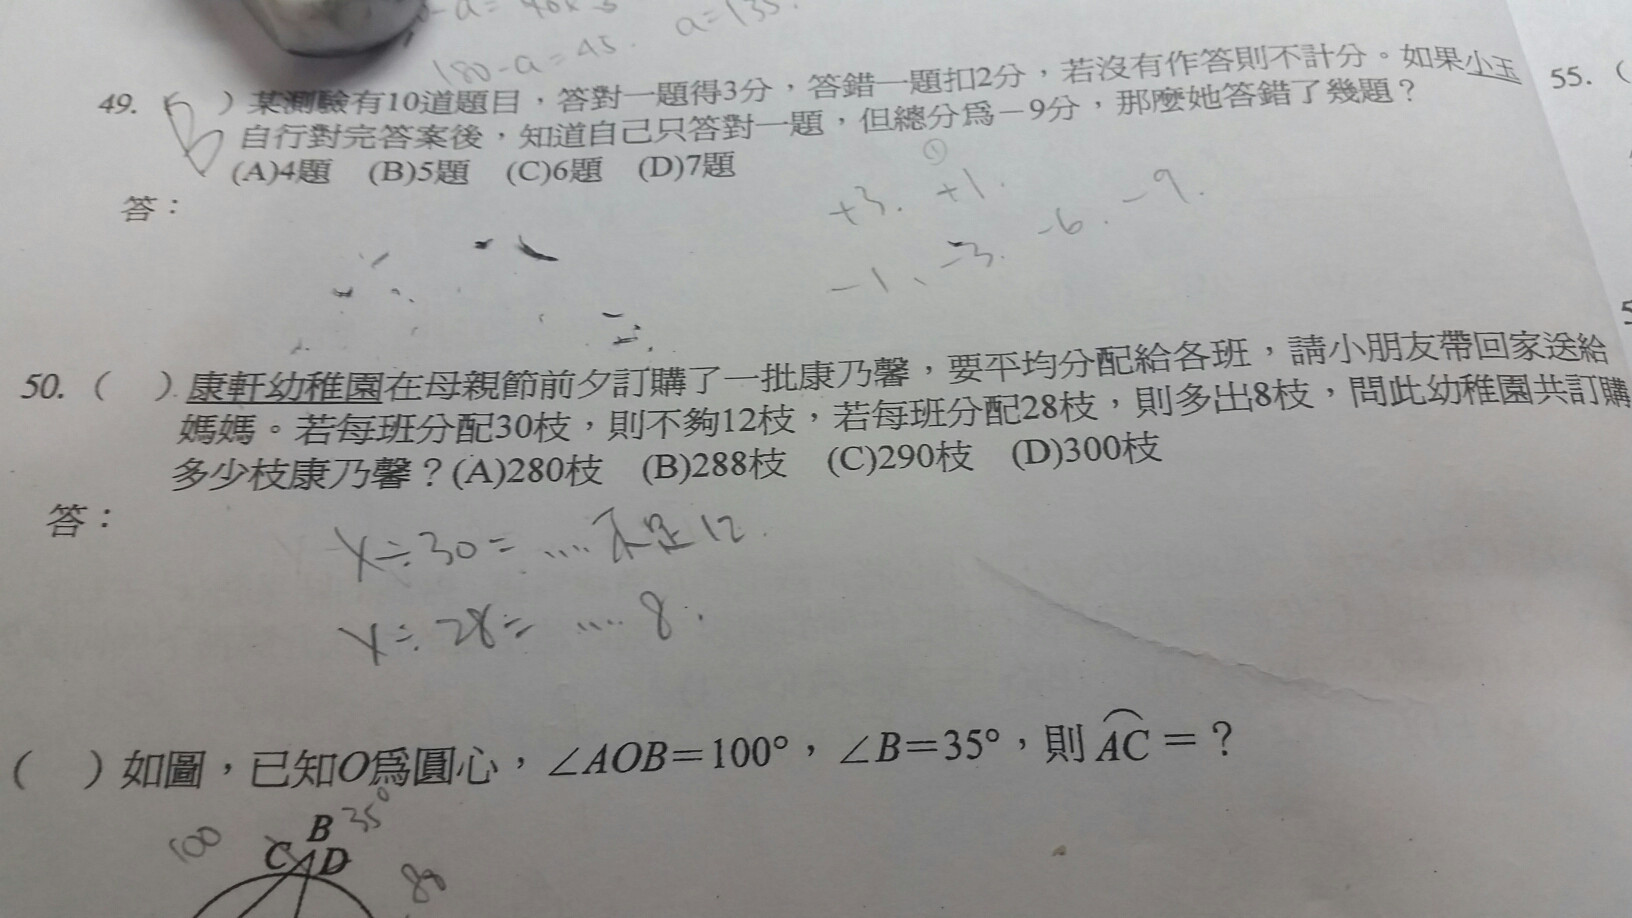 180-a=45. a=135.
49. ( B ) 某測驗有10道題目，答對一題得3分，答錯一題扣2分，若沒有作答則不計分。如果小玉
自行對完答案後，知道自己只答對一題，但總分為－9分，那麼她答錯了幾題？
(A)4題 (B)5題 (C)6題 (D)7題
答：
+3. +1.
-1、-3. -6. -9.
55. (
50. ( ) 康軒幼稚園在母親節前夕訂購了一批康乃馨，要平均分配給各班，請小朋友帶回家送給
媽媽。若每班分配30枝，則不夠12枝，若每班分配28枝，則多出8枝，問此幼稚園共訂購
多少枝康乃馨？(A)280枝 (B)288枝 (C)290枝 (D)300枝
答：
X÷30= .... 不足12.
X÷28= .... 8.
( ) 如圖，已知O為圓心，∠AOB=100°，∠B=35°，則AC=？
100 B 35°
C D 80